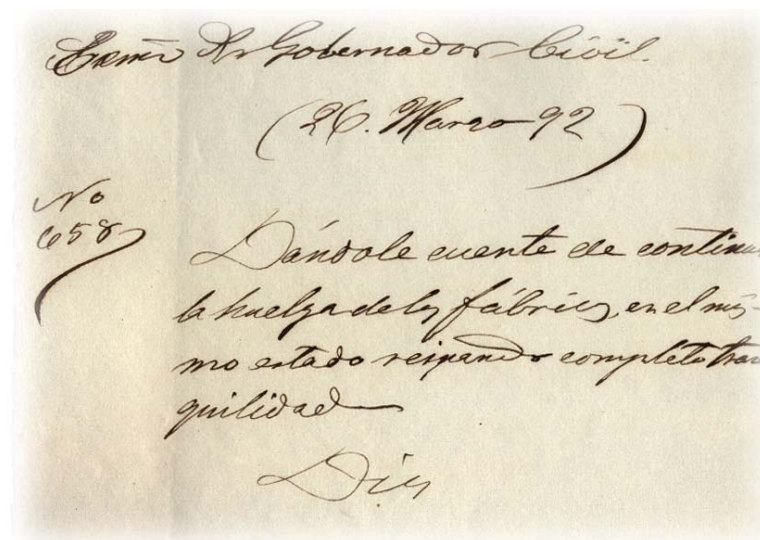 Exmo Sr Gobernador Civil.
(26. Marzo 92)
No
658
Dándole cuenta de continu
la huelga de las fábricas, en el mis-
mo estado reinando completa tran
quilidad
Dios